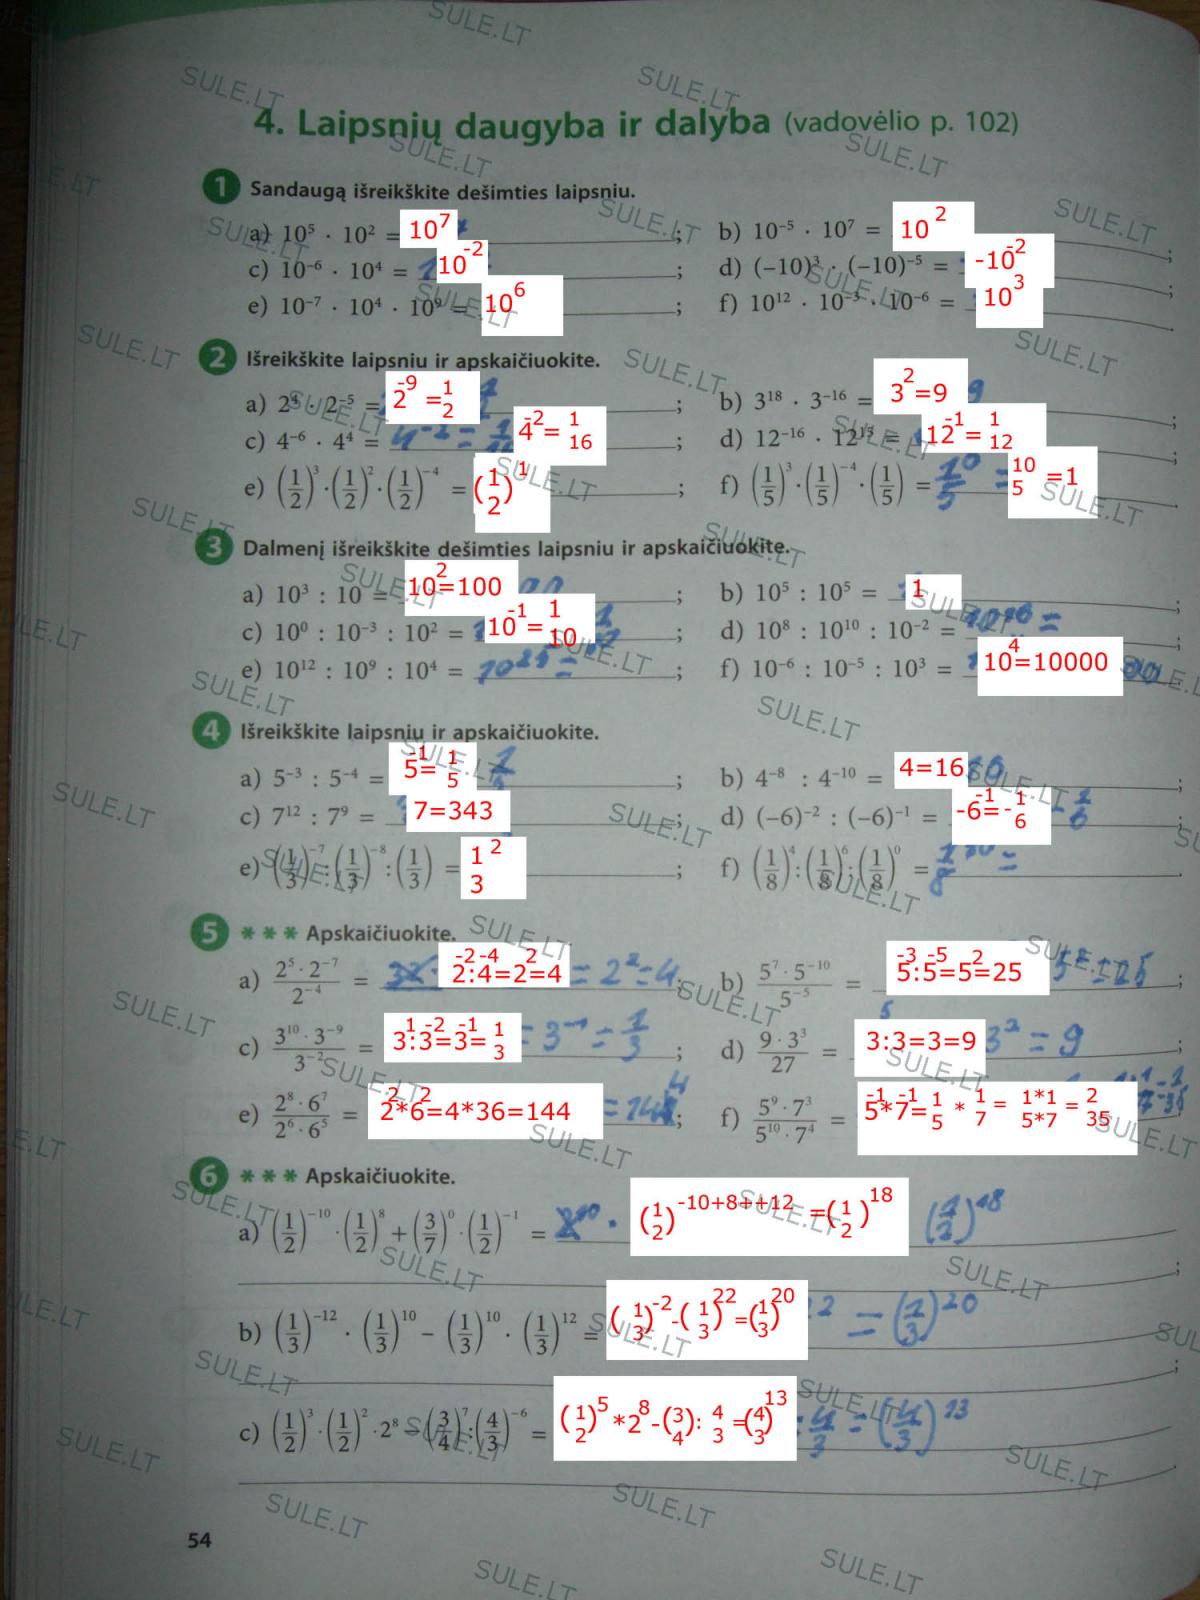 4. Laipsnių daugyba ir dalyba (vadovėlio p. 102)
1 Sandaugą išreikškite dešimties laipsniu.
a) 10⁵ · 10² = 10⁷ ; b) 10⁻⁵ · 10⁷ = 10² ;
c) 10⁻⁶ · 10⁴ = 10⁻² ; d) (−10)³ · (−10)⁻⁵ = -10⁻² ;
e) 10⁻⁷ · 10⁴ · 10⁹ = 10⁶ ; f) 10¹² · 10⁻³ · 10⁻⁶ = 10³ .
2 Išreikškite laipsniu ir apskaičiuokite.
a) 2⁴ · 2⁻⁵ = 2⁻⁹ = 1/2 ; b) 3¹⁸ · 3⁻¹⁶ = 3²=9 ;
c) 4⁻⁶ · 4⁴ = 4⁻² = 4⁻² = 1/16 ; d) 12⁻¹⁶ · 12¹⁵ = 12⁻¹ = 1/12 ;
e) (1/2)³ · (1/2)² · (1/2)⁻⁴ = (1/2)¹ ; f) (1/5)³ · (1/5)⁻⁴ · (1/5) = 1/5⁰ = 10/5 =1 .
3 Dalmenį išreikškite dešimties laipsniu ir apskaičiuokite.
a) 10³ : 10 = 10²=100 ; b) 10⁵ : 10⁵ = 1 ;
c) 10⁰ : 10⁻³ : 10² = 10⁻¹ = 1/10 ; d) 10⁸ : 10¹⁰ : 10⁻² = 10¹⁶ = ;
e) 10¹² : 10⁹ : 10⁴ = 10²⁵ = ; f) 10⁻⁶ : 10⁻⁵ : 10³ = 10⁴=10000 .
4 Išreikškite laipsniu ir apskaičiuokite.
a) 5⁻³ : 5⁻⁴ = 5⁻¹ = 1/5 ; b) 4⁻⁸ : 4⁻¹⁰ = 4=16 ;
c) 7¹² : 7⁹ = 7=343 ; d) (−6)⁻² : (−6)⁻¹ = -6⁻¹ = -1/6 ;
e) (1/3)⁻⁷ : (1/3)⁻⁸ : (1/3) = 1²/3 ; f) (1/8)⁴ : (1/8)⁶ : (1/8)⁰ = 1/8¹⁰ = .
5 *** Apskaičiuokite.
a) 2⁵ · 2⁻⁷ / 2⁻⁴ = 2⁻²:4⁻⁴=2²=4 = 2² = 4 ; b) 5⁷ · 5⁻¹⁰ / 5⁻⁵ = 5⁻³:5⁻⁵=5²=25 5² = 25 ;
c) 3¹⁰ · 3⁻⁹ / 3⁻² = 3¹:3⁻²=3⁻¹= 1/3 = 3⁻¹ = 1/3 ; d) 9 · 3³ / 27 = 3:3=3=9 3² = 9 ;
e) 2⁸ · 6⁷ / 2⁶ · 6⁵ = 2²*6²=4*36=144 = 144 ; f) 5⁹ · 7³ / 5¹⁰ · 7⁴ = 5⁻¹*7⁻¹= 1/5 * 1/7 = 1*1/5*7 = 2/35
6 *** Apskaičiuokite.
a) (1/2)⁻¹⁰ · (1/2)⁸ + (3/7)⁰ · (1/2)⁻¹ = (1/2)^-10+8++12 =(1/2)¹⁸ (1/2)¹⁸ ;
b) (1/3)⁻¹² · (1/3)¹⁰ − (1/3)¹⁰ · (1/3)¹² = (1/3)⁻²-(1/3)²²=(1/3)²⁰ = (1/3)²⁰ ;
c) (1/2)³ · (1/2)² · 2⁸ − (3/4)⁷ : (4/3)⁻⁶ = (1/2)⁵*2⁸-(3/4): 4/3 =(4/3)¹³ : 4/3 = (4/3)¹³ .
54
SULE.LT